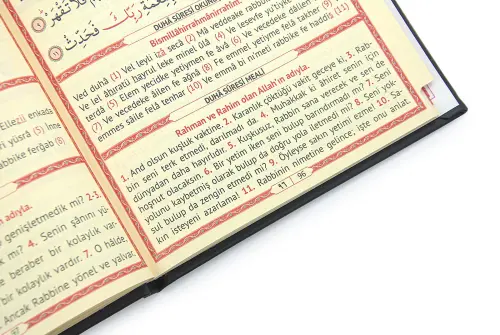 رَبِّكَ فَحَدِّثْ
DUHÂ SÛRESİ OKUNU
Bismillâhirrahmânirrahîm.
Ved duhâ (1) Vel leyli izâ secâ (2) Mâ veddeake rabbuk
Ve lel âhıratü hayrul leke minel ûlâ (4) Ve lesevfe yu'tyke
terdâ (5) Elem yecidke yetîmen fe âvâ (6) Ve vecedeke dâllen
(7) Ve vecedeke âilen fe ağnâ (8) Fe emmel yetîme felâ takher (9)
emmes sâile felâ tenhar (10) Ve emmâ bi ni'meti rabbike fe haddis (11)
DUHÂ SÛRESİ MEALİ
Rahman ve Rahîm olan Allah'ın adıyla.
1. And olsun kuşluk vaktine. 2. Karanlık çöktüğü vakit geceye ki, 3. Rab-
bin seni terk etmedi, darılmadı da. 4. Muhakkak ki âhiret senin için
dünyadan daha hayırlıdır. 5. Kuşkusuz, Rabbin sana verecek ve sen de
hoşnut olacaksın. 6. Bir yetim iken seni bulup barındırmadı mı? 7. Seni
yolunu kaybetmiş olarak bulup da doğru yola iletmedi mi? 8. Seni yok-
sul bulup da zengin etmedi mi? 9. Öyleyse sakın yetimi ezme! 10. Sa-
kın isteyeni azarlama! 11. Rabbinin nimetine gelince, işte onu anlat.
٩٦ 96
Ellezî enkada
yüsrâ (5) İnne
rabbike ferğab (8)
adıyla.
genişletmedik mi? 2-3.
mi? 4. Senin şânını yü-
e beraber bir kolaylık var-
bir kolaylık vardır. 7. O hâlde,
Ancak Rabbine yönel ve yalvar.